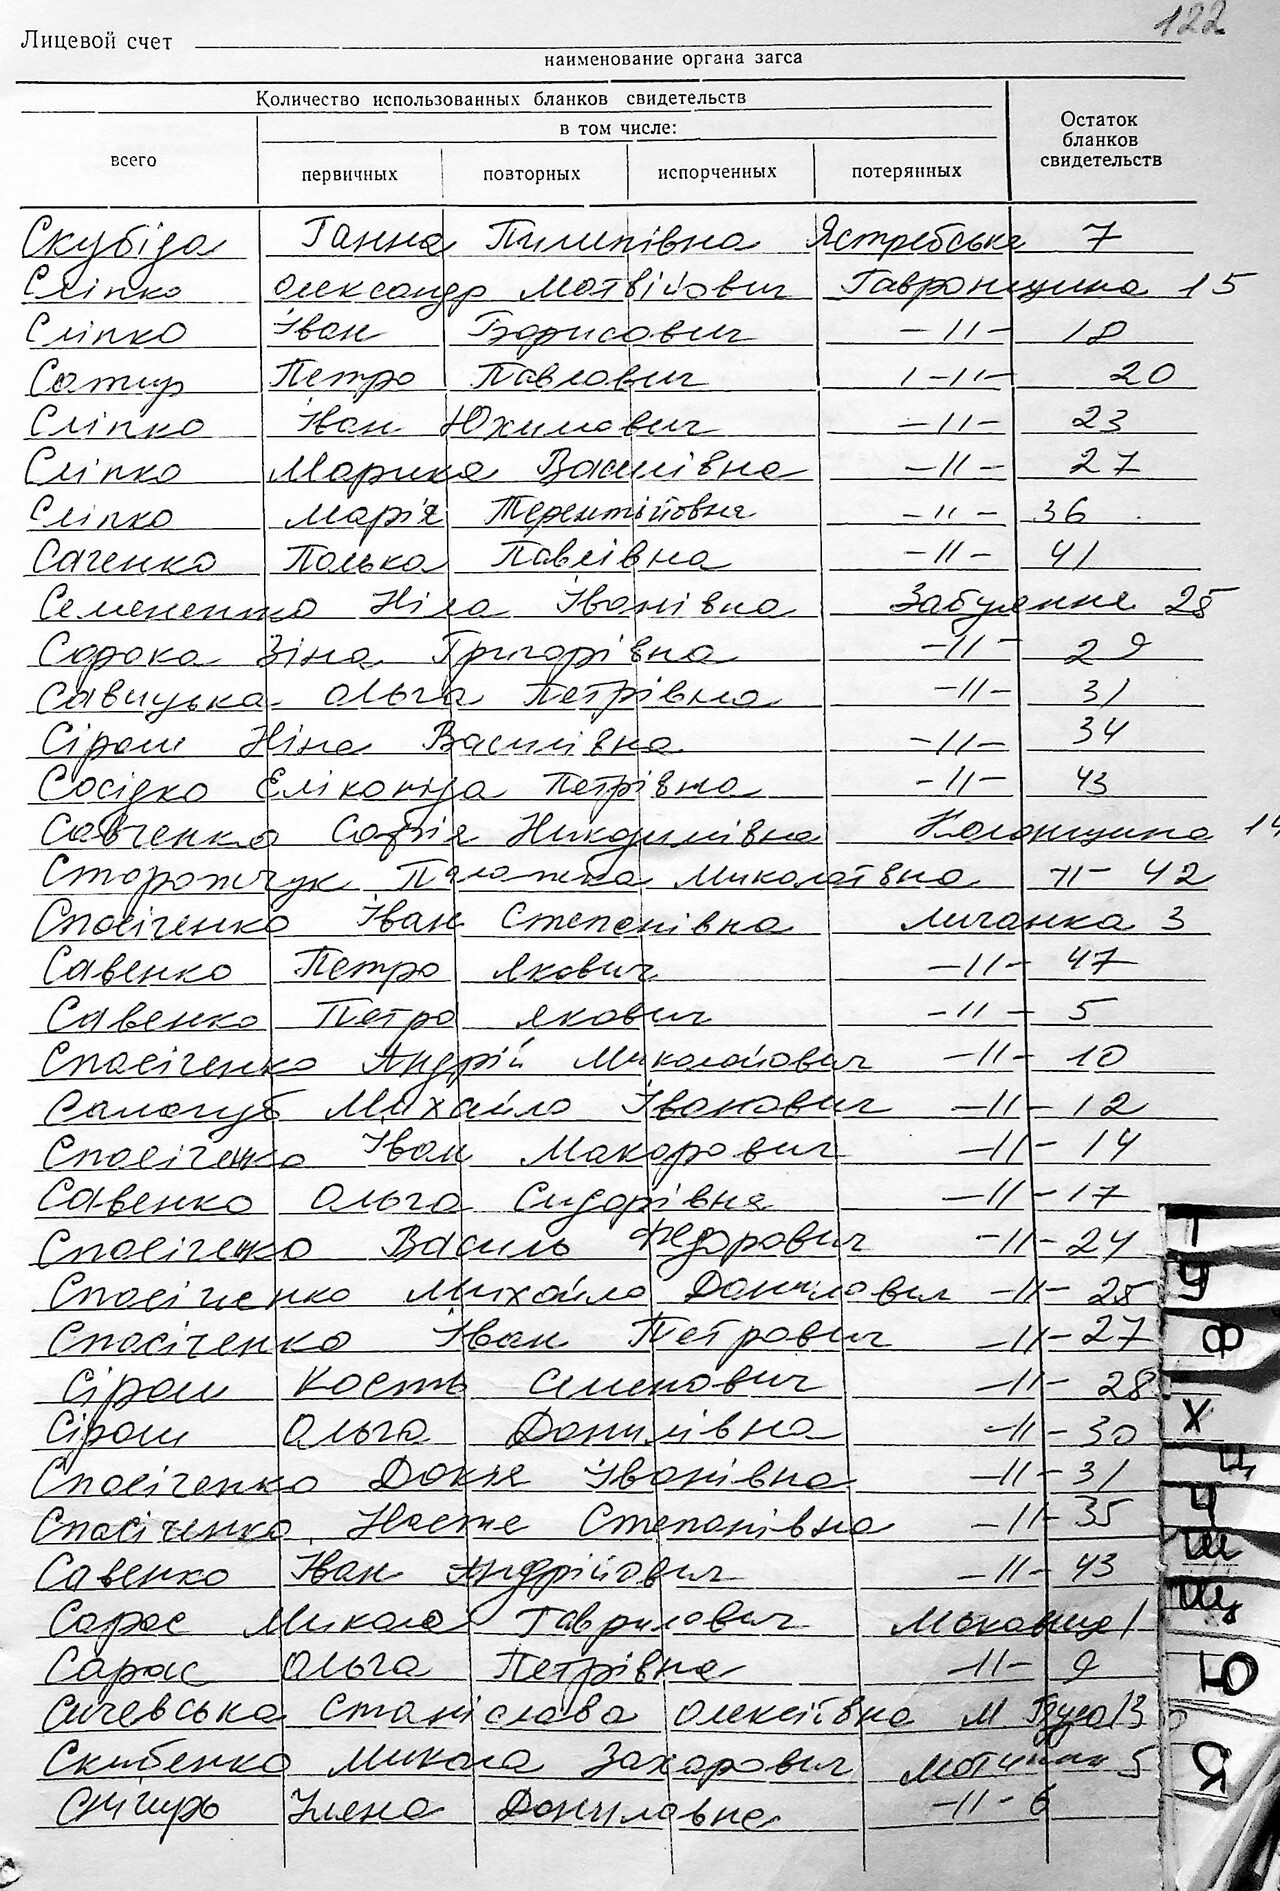 122
Лицевой счет
наименование органа загса
Количество использованных бланков свидетельств
Остаток бланков свидетельств
всего
в том числе:
первичных повторных испорченных потерянных
Скубіда Ганна Пилипівна Ястребська 7
Сліпко Олександр Матвійович Гавронщина 15
Сліпко Іван Борисович -11- 18
Сатир Петро Павлович -11- 20
Сліпко Іван Юхимович -11- 23
Сліпко Марика Василівна -11- 27
Сліпко Марія Терентійовна -11- 36
Саченко Полька Павлівна -11- 41
Семененко Ніла Іванівна Забуянне 25
Сорока Зіна Григорівна -11- 29
Савицька Ольга Петрівна -11- 31
Сірош Ніна Василівна -11- 34
Сосідко Петрівна -11- 43
Савченко Софія Никодимівна Колонщина 14
Сторожчук Палажка Миколаївна -11- 42
Спасіченко Іван Степанівна Личанка 3
Савенко Петро Якович -11- 47
Савенко Петро Якович -11- 5
Спасіченко Андрій Миколайович -11- 10
Салогуб Михайло Іванович -11- 12
Спасіченко Іван Макарович -11- 14
Савенко Ольга Сидорівна -11- 17
Спасіченко Василь Федорович -11- 24
Спасіченко Михайло Данилович -11- 25
Спасіченко Іван Петрович -11- 27
Сірош Кость Семенович -11- 28
Сірош Ольга Данилівна -11- 30
Спасіченко Докія Іванівна -11- 31
Спасіченко Настя Степанівна -11- 35
Савенко Іван Андрійович -11- 43
Сарас Микола Гаврилович Маковище 1
Сарас Ольга Петрівна -11- 9
Сичевська Станіслава Олексіївна М. Гута 13
Скибенко Микола Захарович Мотижин 5
Снігирь Уляна Даниловна -11- 6
Т
У
Ф
Х
Ц
Ч
Ш
Щ
Ю
Я